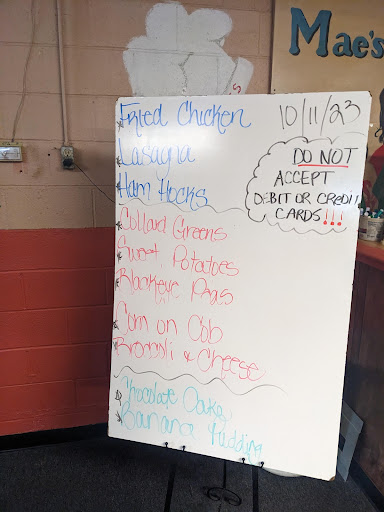 Mae's
10/11/23
Fried Chicken
Lasagna
Ham Hocks
DO NOT
ACCEPT
DEBIT OR CREDIT
CARDS!!!
Collard Greens
Sweet Potatoes
Blackeye Peas
Corn on Cob
Broccoli & Cheese
Chocolate Cake
Banana Pudding